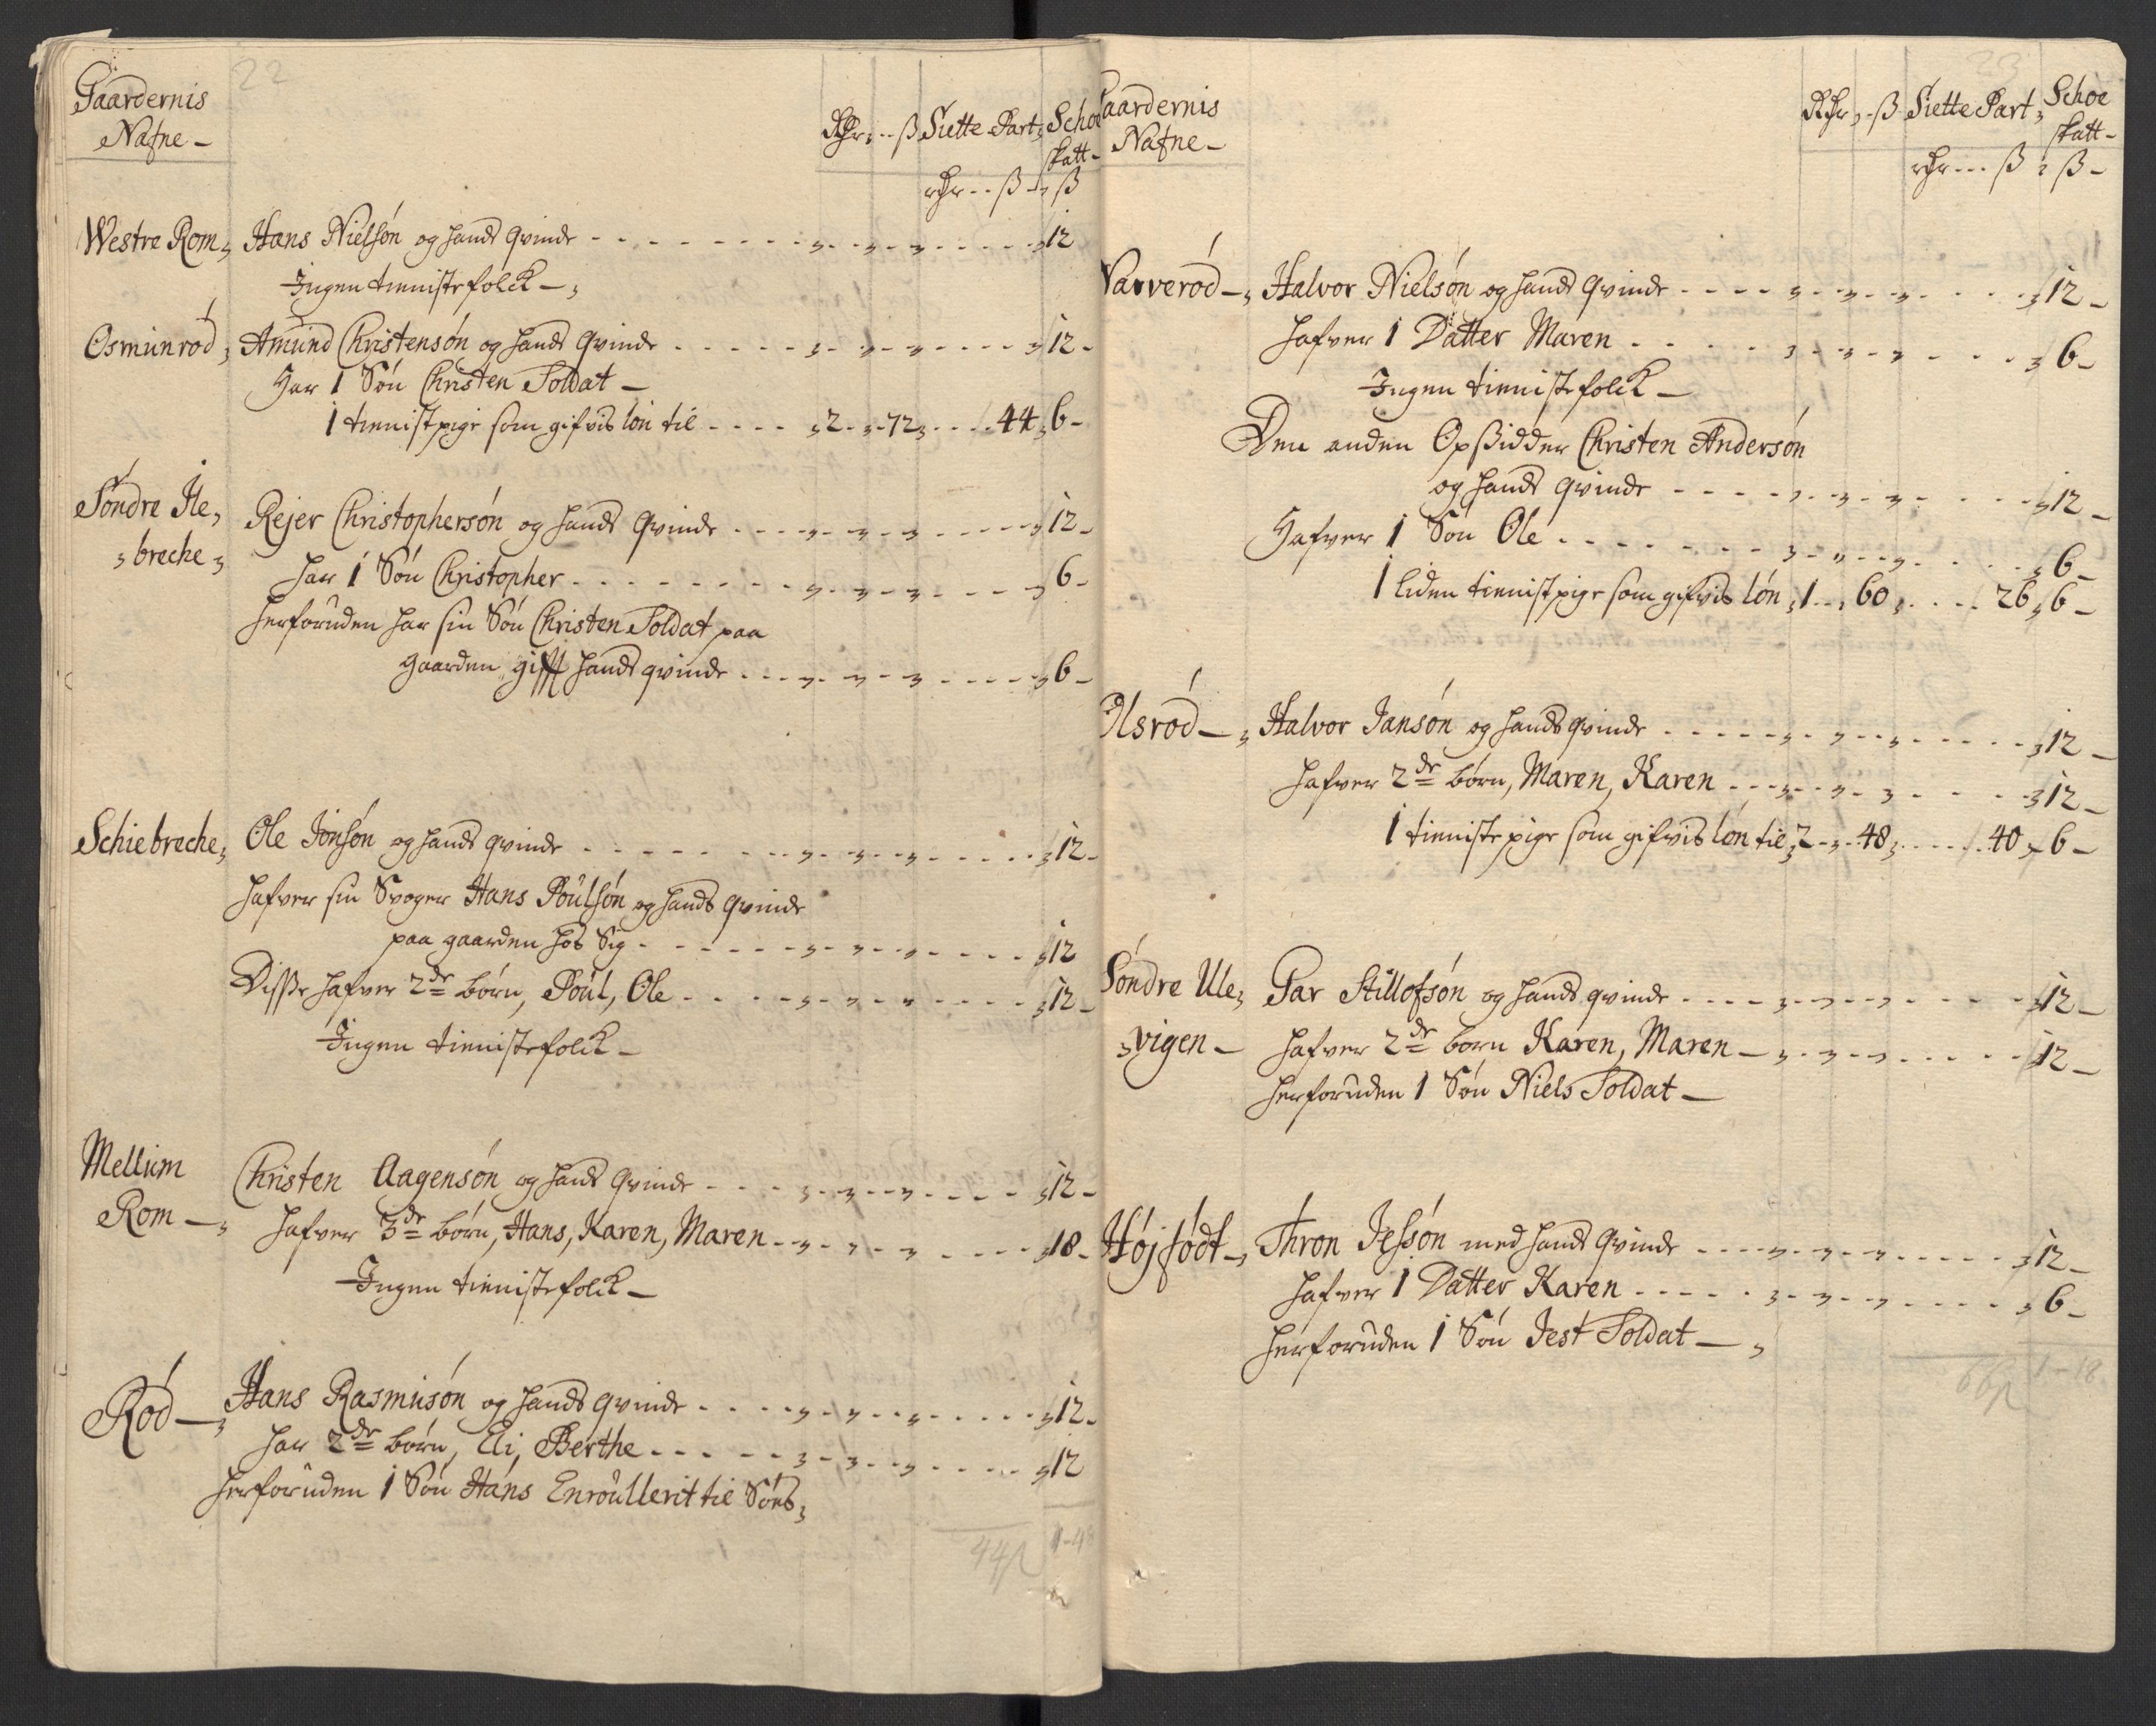 22
Gaardernis
Nafne –
Rdr, ß Siette Part, Schoe
skatt –
rdr ß ß
Westre Rom, Hans Nielsón og hands qvinde 12
Ingen tienistefolck –
Osmunród, Amund Christensón og hands qvinde 12 –
Har 1 Són Christen Soldat –
1 tienistpige som gifvis lón til 2 72 44 6 –
Sóndre Ile, Rejer Christophersón og hands qvinde 12 –
breche,
har 1 Són Christopher 6 –
herforuden har sin Són Christen Soldat paa
gaarden gifft hands qvinde 6 –
Schiebreche, Ole Jonsón og hands qvinde 12 –
hafver sin Svoger Hans Poulsón og hands qvinde
paa gaarden hos Sig 12
Disse hafver 2de bórn, Poul, Ole 12 –
Ingen tienistefolck –
Mellum Christen Aagensón og hands qvinde 12 –
Rom –, hafver 3de bórn, Hans, Karen, Maren 18 –
Ingen tienistefolck –
Ród –, Hans Rasmusón og hands qvinde 12 –
har 2de bórn, Eli, Berthe 12
herforuden 1 Són Hans Enroullerit til Sóes,
44ß 1–48
23
Gaardernis
Nafne –
Rdr, ß Siette Part, Schoe
skatt –
rdr ß ß –
Varveród –, Halvor Nielsón og hands qvinde 12 –
hafver 1 Datter Maren 6 –
Ingen tienistefolck –
Den anden Opsidder Christen Andersón
og hands qvinde 12 –
Hafver 1 Són Ole 6 –
1 liden tienistpige som gifvis lón 1 60 26 6 –
Ilsród –, Halvor Jansón og hands qvinde 12 –
hafver 2de bórn, Maren, Karen 12 –
1 tieniste pige som gifvis lón til 2 48 40 6 –
Sóndre Ule, Gar Stillofsón og hands qvinde 12 –
vigen – hafver 2de bórn Karen, Maren – 12 –
herforuden 1 Són Niels Soldat –
Hójfódt –, Thron Jessón med hands qvinde 12 –
hafver 1 Datter Karen 6 –
herforuden 1 Són Jest Soldat –,
66ß 1–18